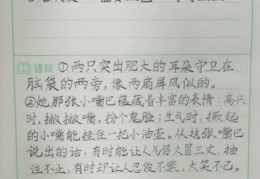 语段 ①两只突出肥大的耳朵守卫在
脑袋的两旁,像两扇屏风似的。
②她那张小嘴巴蕴藏着丰富的表情:高兴
时,撇撇嘴,扮个鬼脸;生气时,撅起
的小嘴能挂住一把小油壶。从这张嘴巴
说出的话,有时能让人气得火冒三丈,抽
泣不止,有时却让人忍俊不禁,大笑不已。